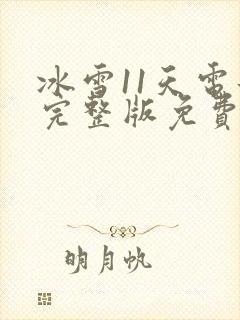 冰雪11天雷
完整版免費
明月帆